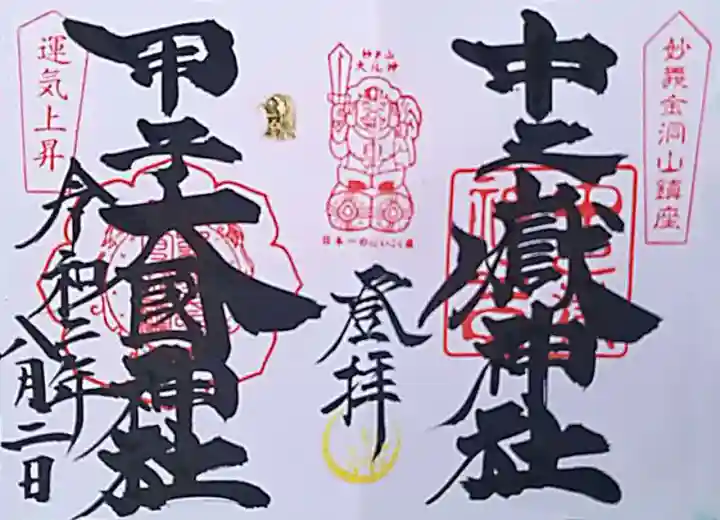 妙義金洞山鎮座
中之嶽神社
登拝
妙義山
大黒神
日本一のだいこく様
運気上昇
甲子大國神社
令和二年
八月二日